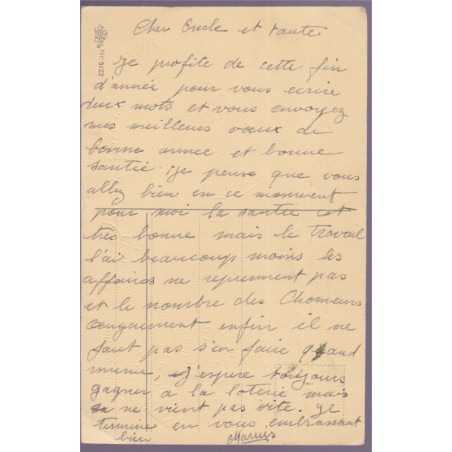 Cher Oncle et tante
Je profite de cette fin
d'année pour vous ecrire
deux mots et vous envoyez
mes meilleures voeux de
bonne année et bonne
santée je pense que vous
allez bien en ce moment
pour moi la santée est
très bonne mais le travail
l'ai beaucoup moins les
affaires ne reprennent pas
et le nombre des Chomeurs
enfin il ne
faut pas s'en faire quand
meme, j'espere toujours
gagner a la loterie mais
sa ne vient pas vite. Je
termine en vous embrassant
bien Marius
N° 5122